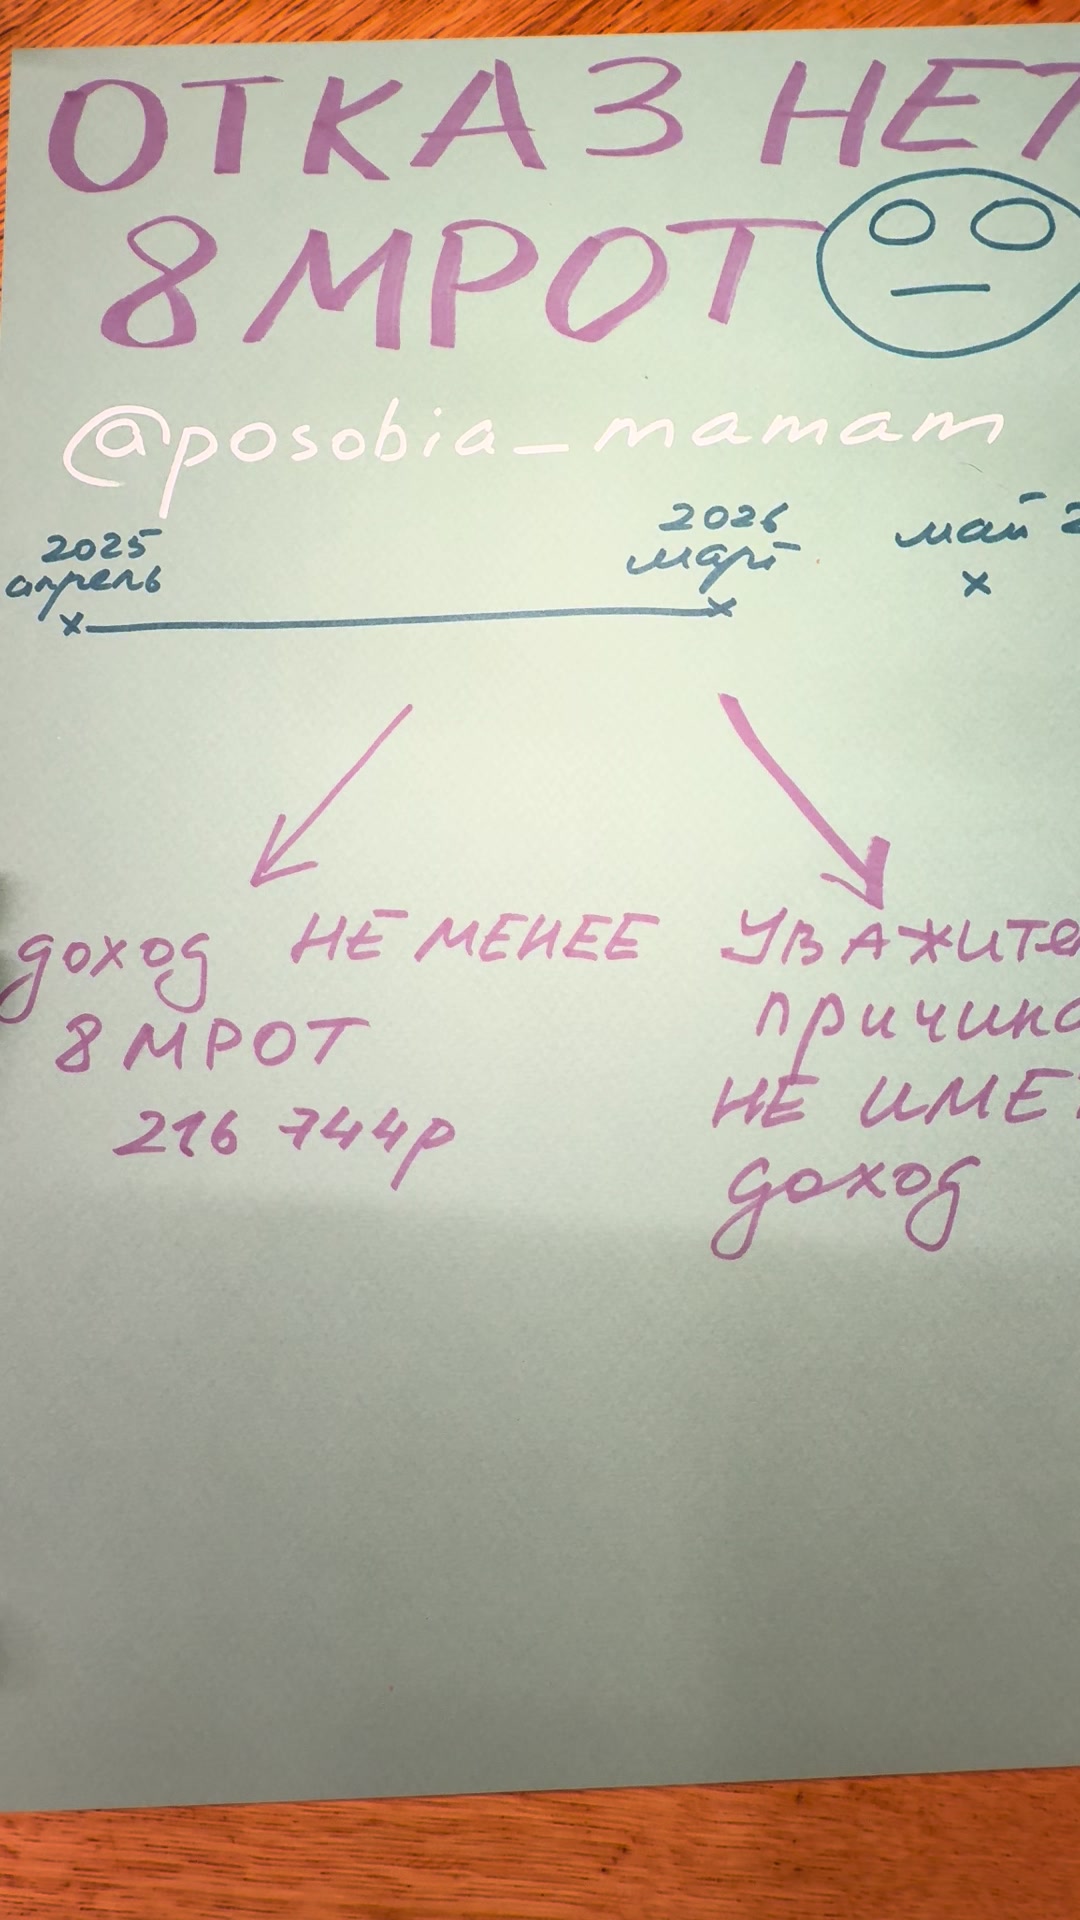 ОТКАЗ НЕТ
8 МРОТ
@posobia_mamam
2025 апрель
2026 март
май 2
доход НЕ МЕНЕЕ
8 МРОТ
216 744р
УВАЖИТЕ
причина
НЕ ИМЕ
доход